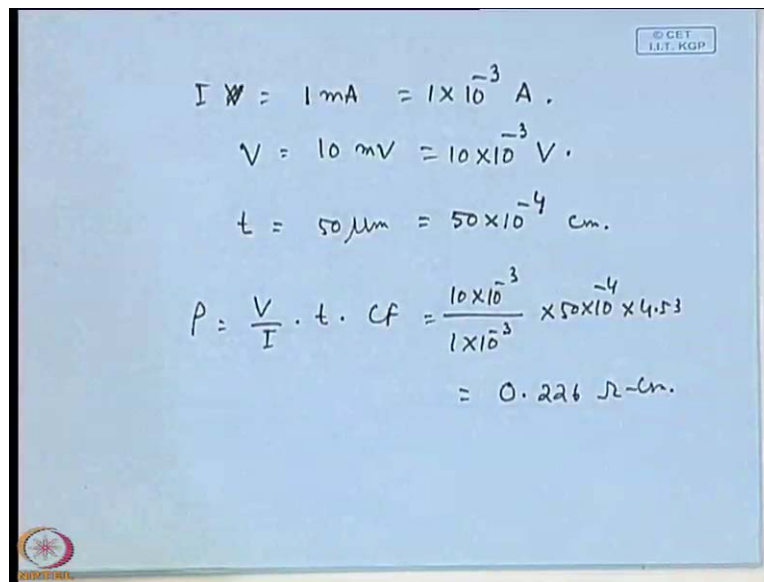 © CET
I.I.T. KGP
I V = 1 mA = 1 × 10⁻³ A.
V = 10 mV = 10×10⁻³ V.
t = 50 μm = 50×10⁻⁴ cm.
ρ = V/I · t · CF = 10×10⁻³ / 1×10⁻³ × 50×10⁻⁴ × 4.53
= 0.226 Ω-cm.
NPTEL